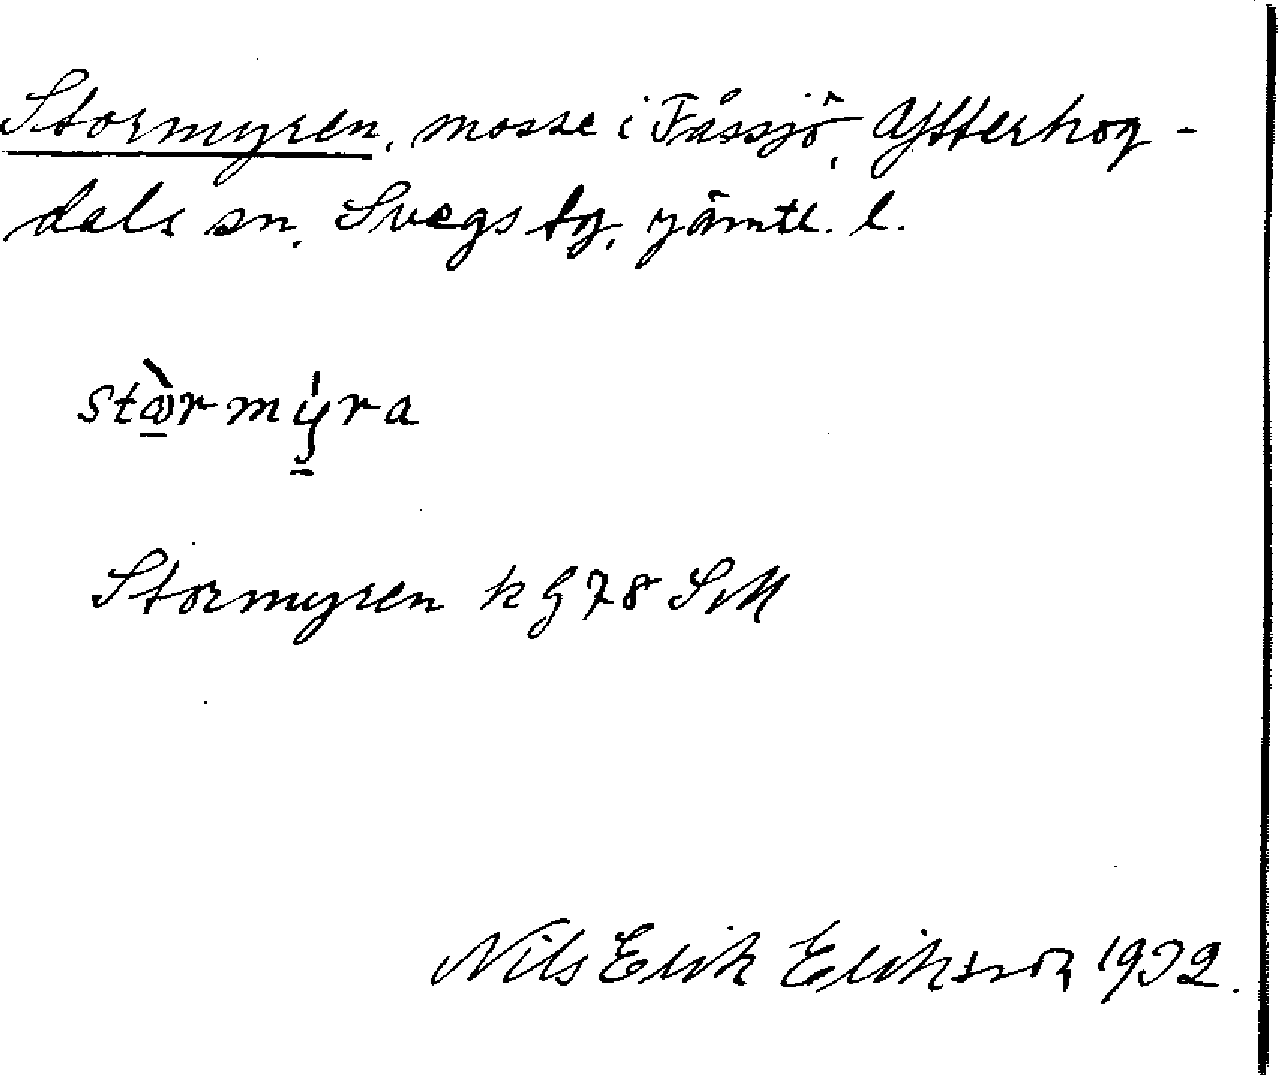 Stormyren, mosse i Fåssjö, Ytterhog-
dals sn, Svegs tg, Jämtl. l.
stòrmýra
Stormyren k G 78 SM
Nils Erik Eriksson 1932.